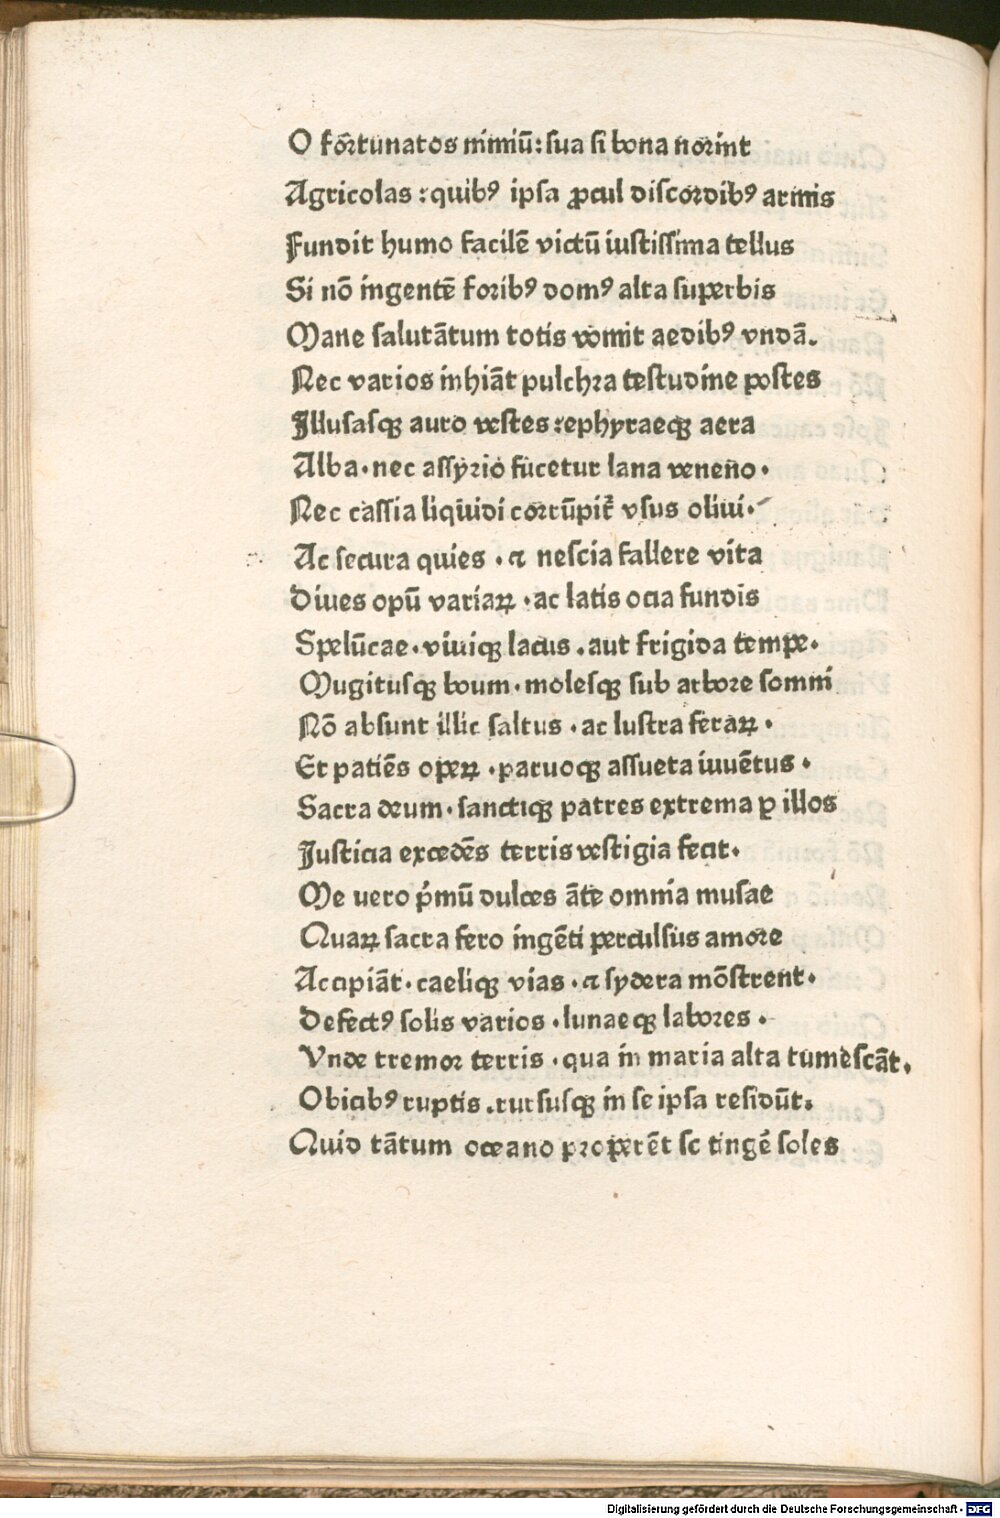 O fõrtunatos nimiũ: sua si bona norint
Agricolas : quibꝰ ipsa ꝓcul discordibꝰ armis
Fundit humo facilẽ victũ iustissima tellus
Si nõ ingentẽ foribꝰ domꝰ alta superbis
Mane salutãtum totis vomit aedibꝰ vndã.
Nec varios inhiãt pulchra testudine postes
Illusasqꝫ auro vestes :ephyraeqꝫ aera
Alba · nec assyrio fucetur lana veneno ·
Nec cassia liquidi corrũpit᷑ vsus oliui ·
Ac secura quies · ⁊ nescia fallere vita
Diues opũ variaꝝ · ac latis ocia fundis
Spelũcae · viuiqꝫ lacus . aut frigida tempe ·
Mugitusqꝫ boum · molesqꝫ sub arbore somni
Nõ absunt illic saltus · ac lustra feraꝝ ·
Et patiẽs opeꝝ · paruoqꝫ assueta iuuẽtus ·
Sacra deum · sanctiqꝫ patres extrema ꝑ illos
Justicia excedẽs terris vestigia fecit ·
Me uero p̃mũ dulces ãte omnia musae
Quaꝝ sacra fero ingẽti perculsus amore
Accipiãt · caeliqꝫ vias · ⁊ sydera mõstrent ·
Defectꝰ solis varios · lunaeqꝫ labores ·
Vnde tremor terris · qua in maria alta tumescãt ·
Obicibꝰ ruptis . rursusqꝫ in se ipsa residũt ·
Quid tãtum oceano properẽt se tingẽ soles
Digitalisierung gefördert durch die Deutsche Forschungsgemeinschaft - DFG